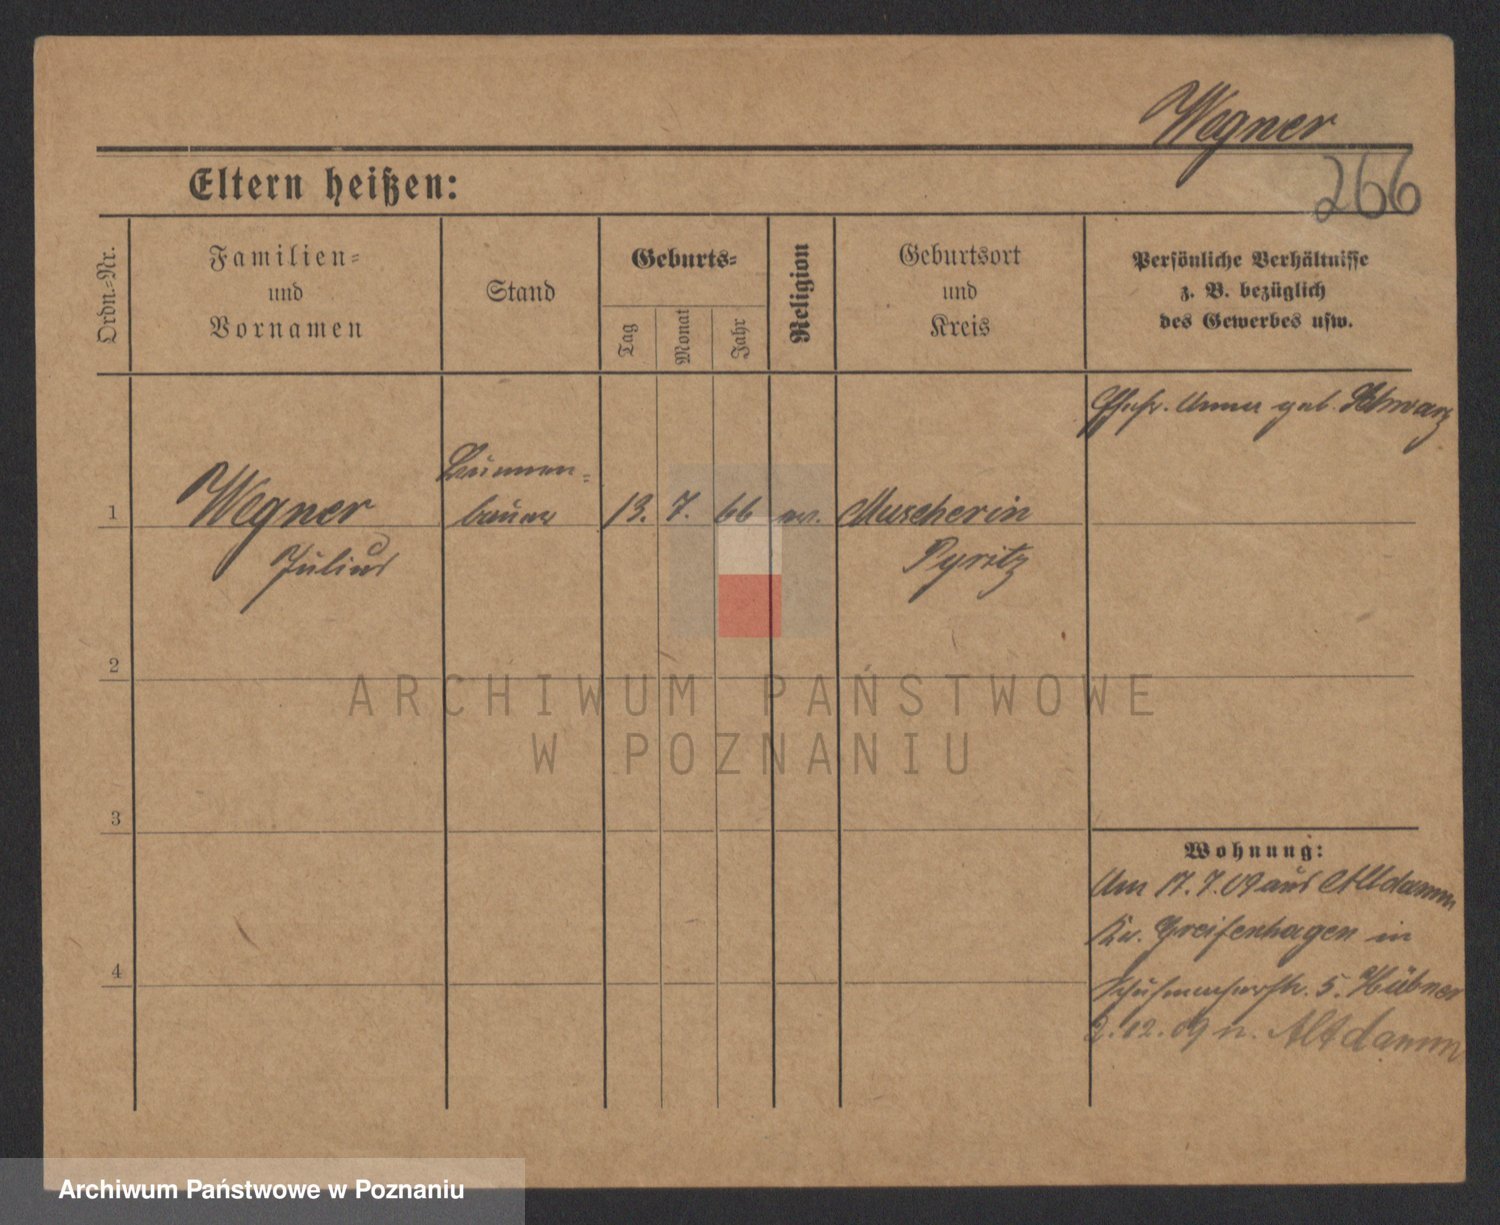 Wegner
266
Eltern heißen:
Ordn.=Nr.
Familien=
und
Vornamen
Stand
Geburts=
Tag
Monat
Jahr
Religion
Geburtsort
und
Kreis
Persönliche Verhältnisse
z. B. bezüglich
des Gewerbes usw.
Ehefr. Anna geb. Schwarz
1
Wegner
Julius
Brunnen=
bauer
13. 7. 66 ev.
Muscherin
Pyritz
2
3
4
Wohnung:
Am 17.7.09 aus Altdamm
Kr. Greifenhagen in
Schuhmacherstr. 5. Hübner
2.12.09 n. Altdamm
ARCHIWUM PAŃSTWOWE
W POZNANIU
Archiwum Państwowe w Poznaniu